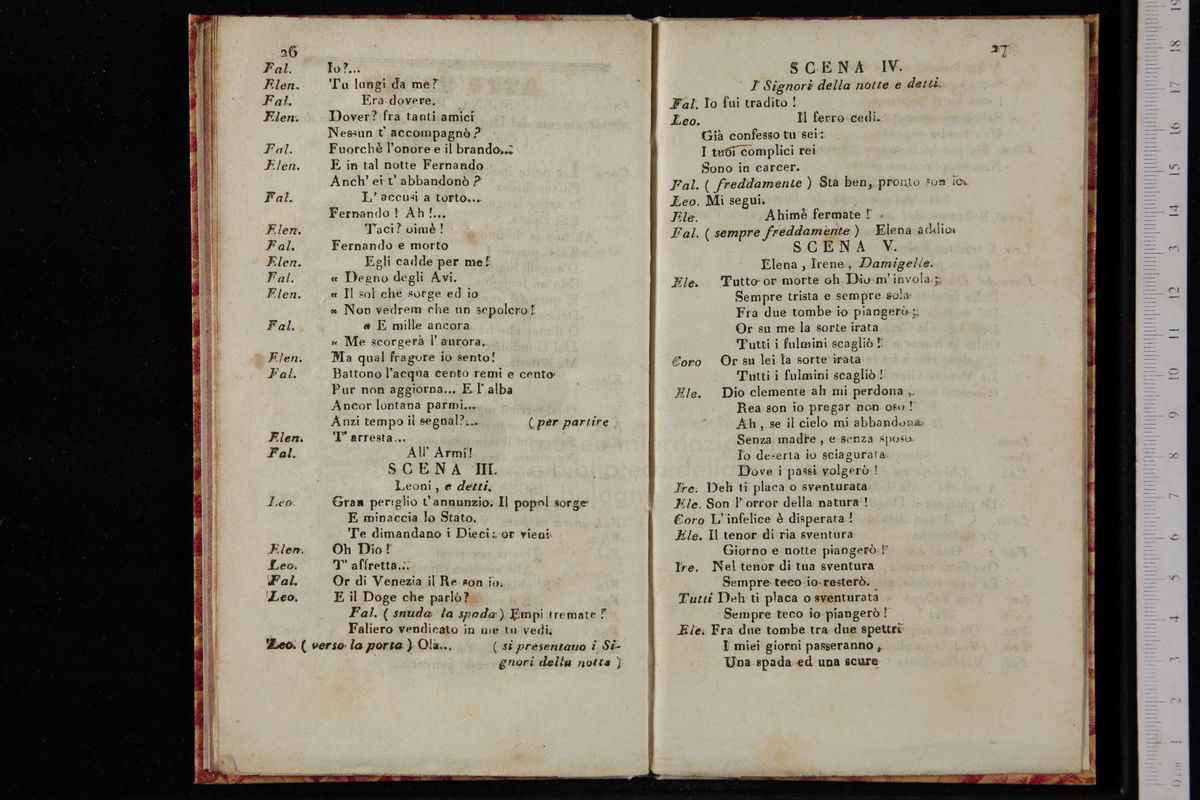 26
Fal. Io?...
Elen. Tu lungi da me?
Fal. Era dovere.
Elen. Dover? fra tanti amici
Nessun t' accompagnò?
Fal. Fuorchè l'onore e il brando...
Elen. E in tal notte Fernando
Anch' ei t' abbandonò?
Fal. L' accusi a torto...
Fernando! Ah!...
Elen. Taci? oimè!
Fal. Fernando e morto
Elen. Egli cadde per me!
Fal. « Degno degli Avi.
Elen. « Il sol che sorge ed io
« Non vedrem che un sepolcro!
Fal. « E mille ancora
« Me scorgerà l' aurora.
Elen. Ma qual fragore io sento!
Fal. Battono l'acqua cento remi e cento
Pur non aggiorna... E l' alba
Ancor lontana parmi...
Anzi tempo il segnal?... (per partire
Elen. T' arresta...
Fal. All' Armi!
SCENA III.
Leoni, e detti.
Leo. Gran periglio t' annunzio. Il popol sorge
E minaccia lo Stato.
Te dimandano i Dieci: or vieni
Elen. Oh Dio!
Leo. T' affretta...
Fal. Or di Venezia il Re son io.
Leo. E il Doge che parlò?
Fal. (snuda la spada) Empi tremate!
Faliero vendicato in me tu vedi.
Leo. (verso la porta) Olà... (si presentano i Si-
gnori della notte)
27
SCENA IV.
I Signori della notte e detti.
Fal. Io fui tradito!
Leo. Il ferro cedi.
Già confesso tu sei:
I tuoi complici rei
Sono in carcer.
Fal. (freddamente) Sta ben, pronto son io.
Leo. Mi segui.
Ele. Ahimè fermate!
Fal. (sempre freddamente) Elena addio.
SCENA V.
Elena, Irene, Damigelle.
Ele. Tutto or morte oh Dio m' invola;
Sempre trista e sempre sola
Fra due tombe io piangerò;
Or su me la sorte irata
Tutti i fulmini scagliò!
Coro Or su lei la sorte irata
Tutti i fulmini scagliò!
Ele. Dio clemente ah mi perdona,
Rea son io pregar non oso!
Ah, se il cielo mi abbandona
Senza madre, e senza sposo
Io deserta io sciagurata
Dove i passi volgerò!
Ire. Deh ti placa o sventurata
Ele. Son l' orror della natura!
Coro L' infelice è disperata!
Ele. Il tenor di ria sventura
Giorno e notte piangerò!
Ire. Nel tenor di tua sventura
Sempre teco io resterò.
Tutti Deh ti placa o sventurata
Sempre teco io piangerò!
Ele. Fra due tombe tra due spettri
I miei giorni passeranno,
Una spada ed una scure